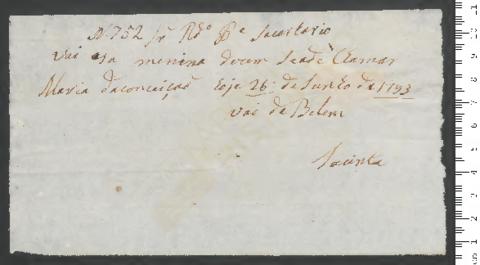 N. 752 Sr Rdo Pe Sacertario
Vai esa menina doem Seade Clamar
Maria daconceiçaõ Hoje 26: de Junho de 1793
Vai de Belem
Jacinta